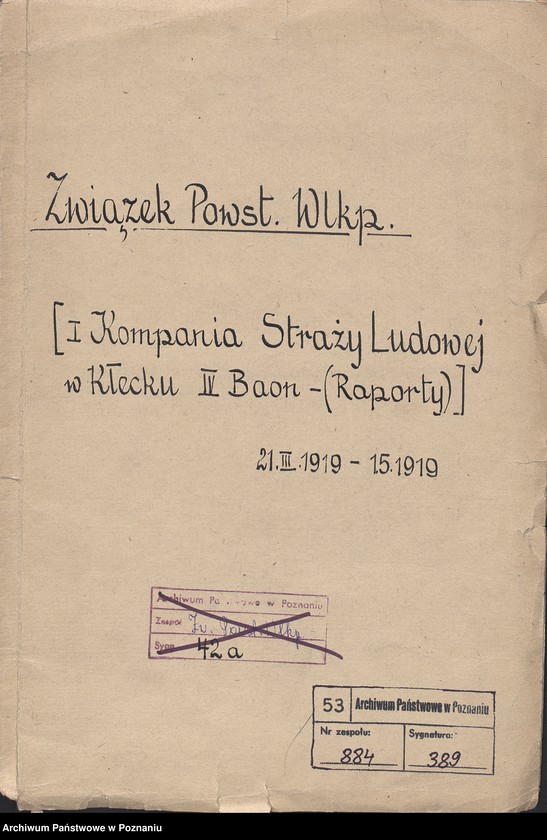 Związek Powst. Wlkp.
[I Kompania Straży Ludowej
w Kłecku IV Baon - (Raporty)]
21.III.1919 - 1.5.1919
Archiwum Państwowe w Poznaniu
Zespół Zw. Powst. Wlkp.
Sygn. 42a
53 Archiwum Państwowe w Poznaniu
Nr zespołu: Sygnatura:
884 389
Archiwum Państwowe w Poznaniu